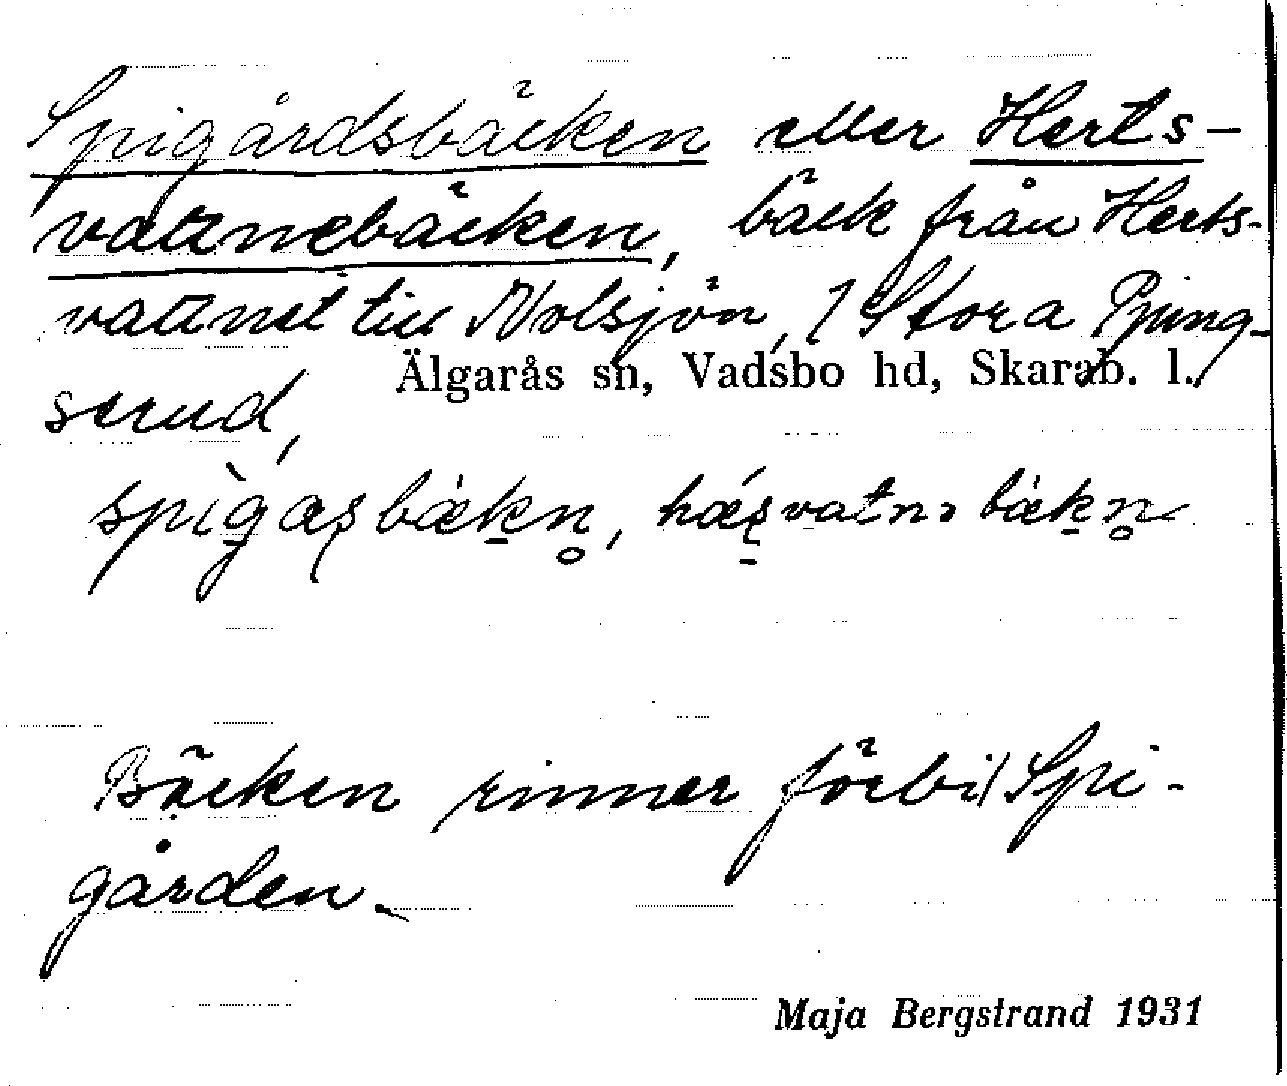 Spigårdsbäcken eller Herts-
vattnebäcken, bäck från Herts-
vattnet till Nolsjön, / Stora Pjung-
Älgarås sn, Vadsbo hd, Skarab. l.
serud,
Bäcken rinner förbi / Spi-
gården.
Maja Bergstrand 1931